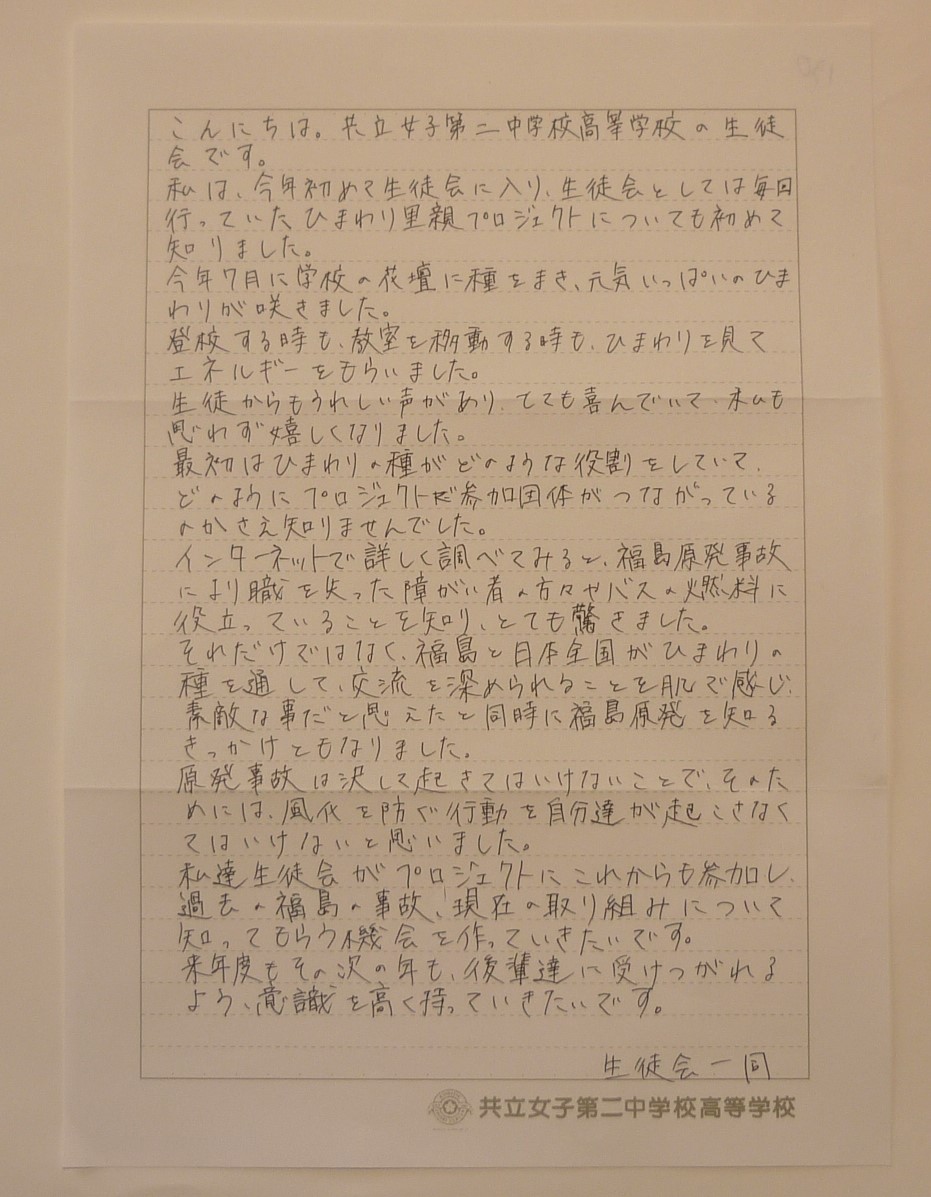 こんにちは。共立女子第二中学校高等学校の生徒
会です。
私は、今年初めて生徒会に入り、生徒会としては毎回
行っていたひまわり里親プロジェクトについても初めて
知りました。
今年7月に学校の花壇に種をまき、元気いっぱいのひま
わりが咲きました。
登校する時も、教室を移動する時も、ひまわりを見て
エネルギーをもらいました。
生徒からもうれしい声があり、とても喜んでいて、私も
思わず嬉しくなりました。
最初はひまわりの種がどのような役割をしていて、
どのようにプロジェクトで参加団体がつながっている
のかさえ知りませんでした。
インターネットで詳しく調べてみると、福島原発事故
により職を失った障がい者の方々やバスの燃料に
役立っていることを知り、とても驚きました。
それだけではなく、福島と日本全国がひまわりの
種を通して、交流を深められることを肌で感じ、
素敵な事だと思えたと同時に福島原発を知る
きっかけともなりました。
原発事故は決して起きてはいけないことで、そのた
めには、風化を防ぐ行動を自分達が起こさなく
てはいけないと思いました。
私達生徒会がプロジェクトにこれからも参加し、
過去の福島の事故、現在の取り組みについて
知ってもらう機会を作っていきたいです。
来年度もその次の年も、後輩達に受けつがれる
よう、意識を高く持っていきたいです。
生徒会一同
共立女子第二中学校高等学校